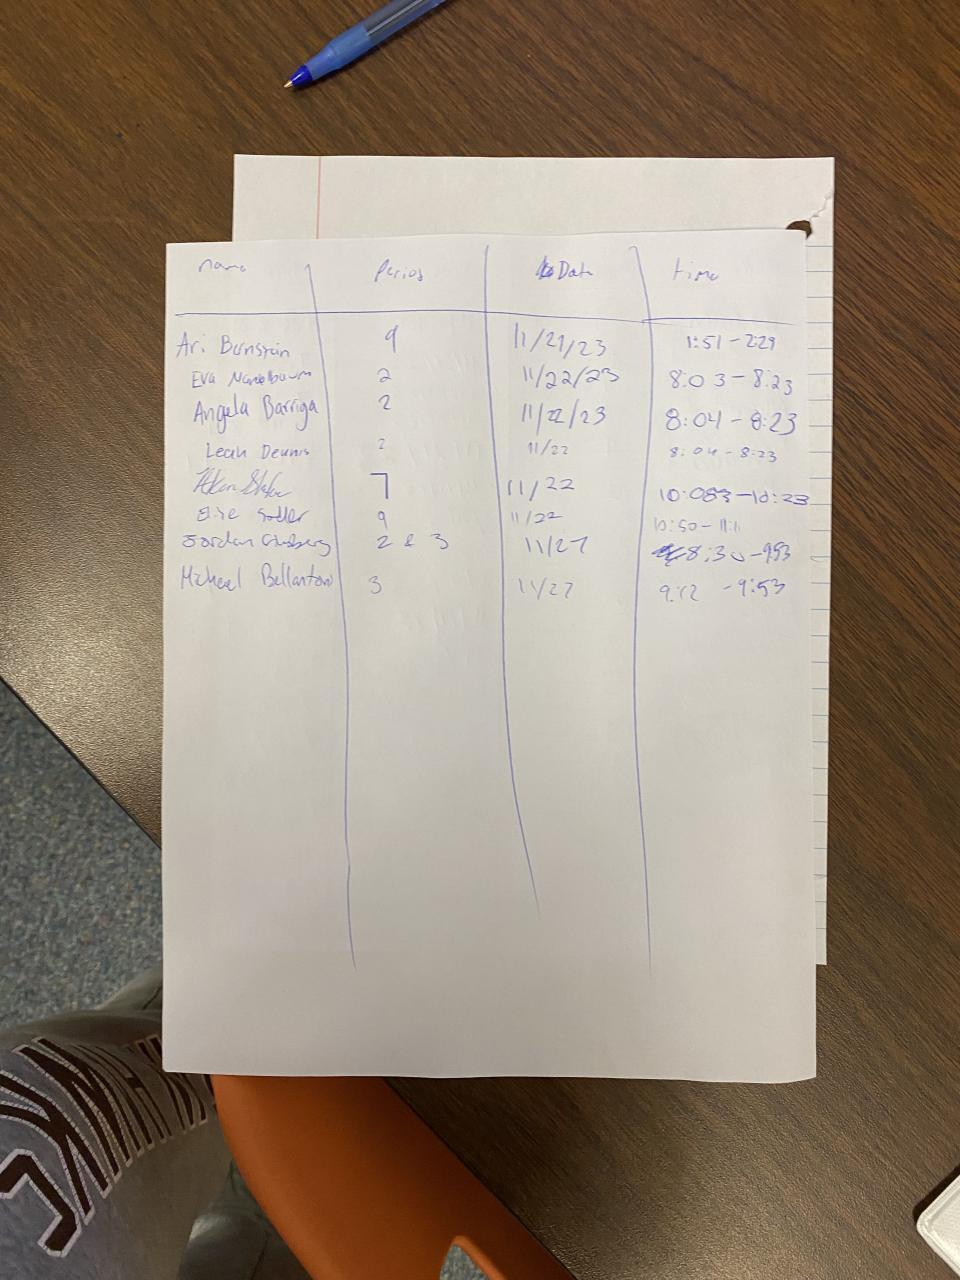 name Period Date time
Ari Bernstein 9 11/21/23 1:51 - 2:29
Eva Mandelbaum 2 11/22/23 8:03 - 8:23
Angela Barriga 2 11/22/23 8:04 - 8:23
Leah Dennis 2 11/22 8:04 - 8:23
7 11/22 - 10:23
Sadler 9 11/22 10:50 -
Jordan Ginsberg 2 & 3 11/27 8:30 - 953
Micheal Bellantoni 3 11/27 9:12 - 9:53